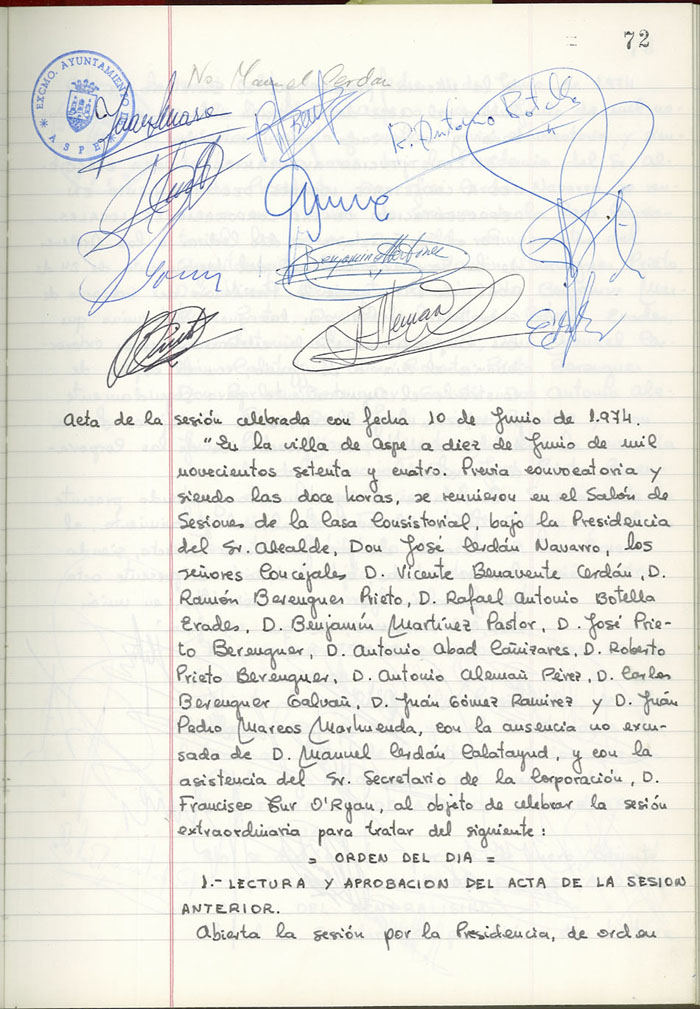 72
No Manuel Cerdan
EXCMO. AYUNTAMIENTO
ASPE
R. Antonio Botella
Benjamin Martinez
Acta de la sesión celebrada con fecha 10 de Junio de 1.974.
"En la villa de Aspe a diez de Junio de mil
novecientos setenta y cuatro. Previa convocatoria y
siendo las doce horas, se reunieron en el Salón de
Sesiones de la Casa Consistorial, bajo la Presidencia
del Sr. Alcalde, Don José Cerdán Navarro, los
señores Concejales D. Vicente Benavente Cerdán, D.
Ramón Berenguer Prieto, D. Rafael Antonio Botella
Erades, D. Benjamín Martínez Pastor, D. José Prie-
to Berenguer, D. Antonio Abad Cañizares, D. Roberto
Prieto Berenguer, D. Antonio Alemañ Pérez, D. Carlos
Berenguer Galvañ, D. Juán Gómez Ramirez y D. Juán
Pedro Marcos Marhuenda, con la ausencia no excu-
sada de D. Manuel Cerdán Calatayud, y con la
asistencia del Sr. Secretario de la Corporación, D.
Francisco Tur O'Ryan, al objeto de celebrar la sesión
extraordinaria para tratar del siguiente:
= ORDEN DEL DIA =
1.- LECTURA Y APROBACION DEL ACTA DE LA SESION
ANTERIOR.
Abierta la sesión por la Presidencia, de orden